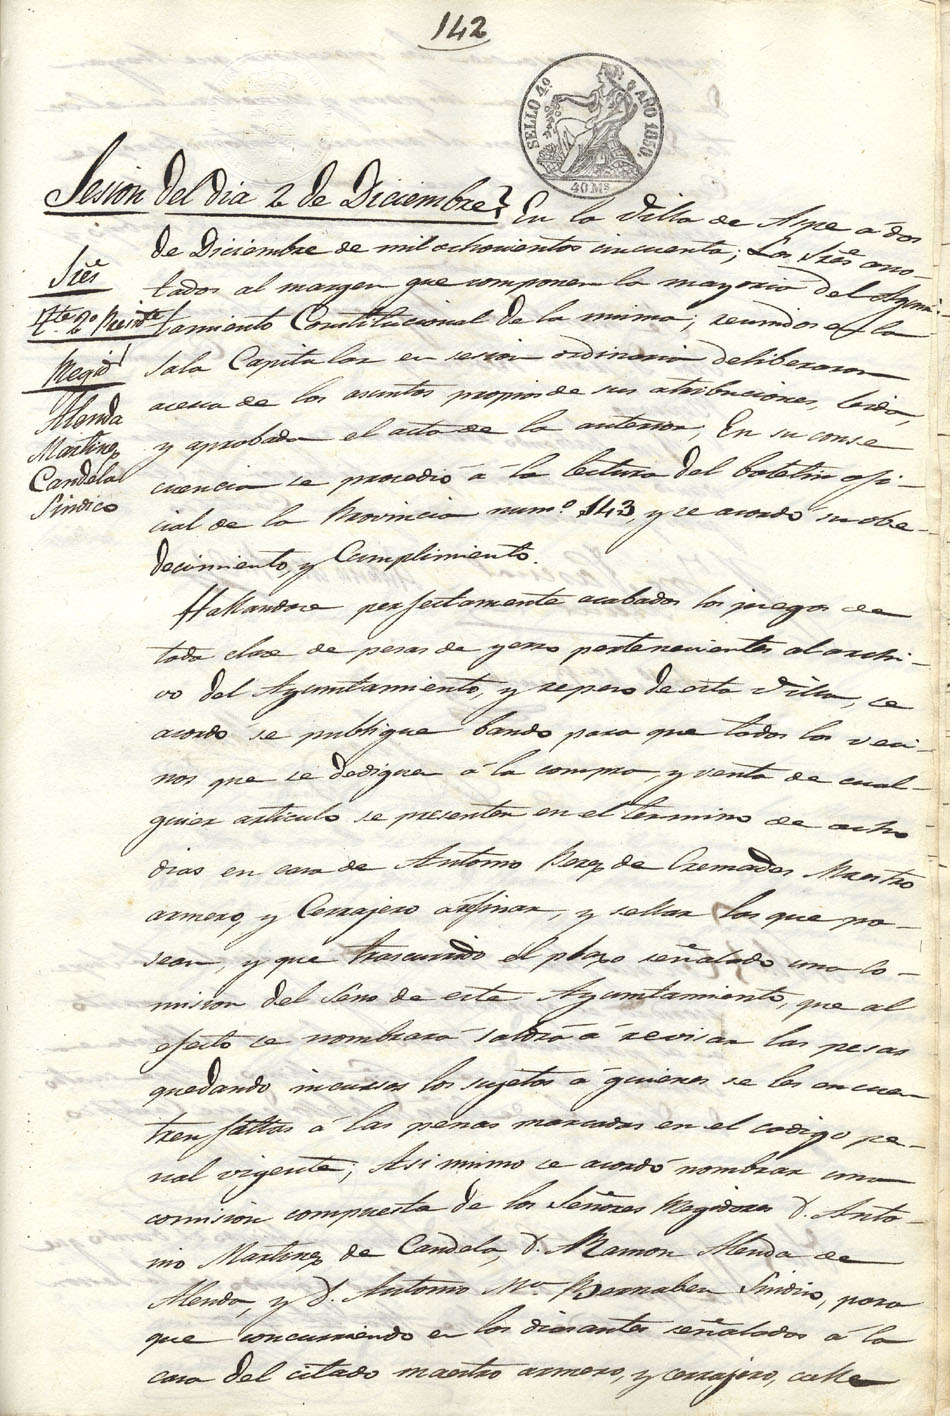 142
SELLO 4º AÑO 1850.
40 Ms
Sesion del dia 2 de Diciembre. En la Villa de Aspe á dos
de Diciembre de mil ochocientos cincuenta; Los Sres ano-
tados al margen que componen la mayoria del Ayun-
tamiento Constitucional de la misma; reunidos en la
Sala Capitular en sesion ordinaria deliberaron
acerca de los asuntos propios de sus atribuciones leida,
y aprobada el acta de la anterior, En su conse
cuencia se procedió á la lectura del boletin ofi-
cial de la Provincia num.º 143, y se acordó su obe-
decimiento, y Cumplimiento.
Sres
Tte 2º Preste
Regid
Alenda
Martinez
Candela
Sindico
Hallandose perfectamente acabados los juegos de
toda clase de pesas de yerro pertenecientes al archi-
vo del Ayuntamiento, y repeso de esta Villa, se
acordó se publique bando para que todos los veci-
nos que se dediquen á la compra, y venta de cual-
quier articulo se presenten en el termino de ocho
dias en casa de Antonio Perez de Cremades Maestro
armero, y Cerrajero á afinar, y sellar las que po-
sean, y que trascurrido el plazo señalado una co-
mision del Seno de este Ayuntamiento, que al
efecto se nombrará saldrá á revisar las pesas
quedando incursos los sugetos á quienes se les encuen
tren faltas á las penas marcadas en el codigo pe-
nal vigente; Asi mismo se acordó nombrar una
comision compuesta de los Señores Regidores D. Anto-
nio Martinez de Candela, D. Ramon Alenda de
Alenda, y D. Antonio Mª Bernabeu Sindico, para
que concurriendo en los dias antes señalados á la
casa del citado maestro armero, y cerrajero, calle